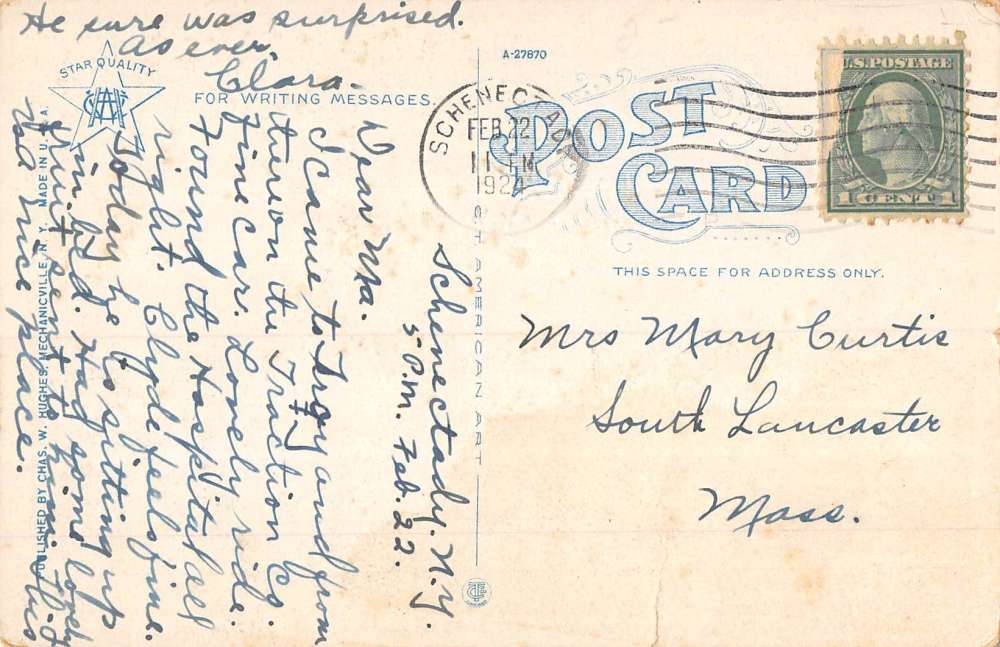 He sure was surprised.
As ever,
Clara.
STAR QUALITY
FOR WRITING MESSAGES.
Schenectady, N.Y.
5 P.M. Feb. 22.
Dear Ma.
I came to Troy and from
there on the Traction Co.
Fine cars. Lovely ride.
Found the Hospital all
right. Clyde feels fine.
Today he is sitting up
in bed. Had some lovely
fruit sent to him. This
nice place.
PUBLISHED BY CHAS. W. HUGHES, MECHANICVILLE, N. Y. MADE IN U. S. A.
C. T. AMERICAN ART
A-27870
POST CARD
SCHENECTADY
FEB 22
11
1924
U.S. POSTAGE
1 CENT 1
THIS SPACE FOR ADDRESS ONLY.
Mrs Mary Curtis
South Lancaster
Mass.